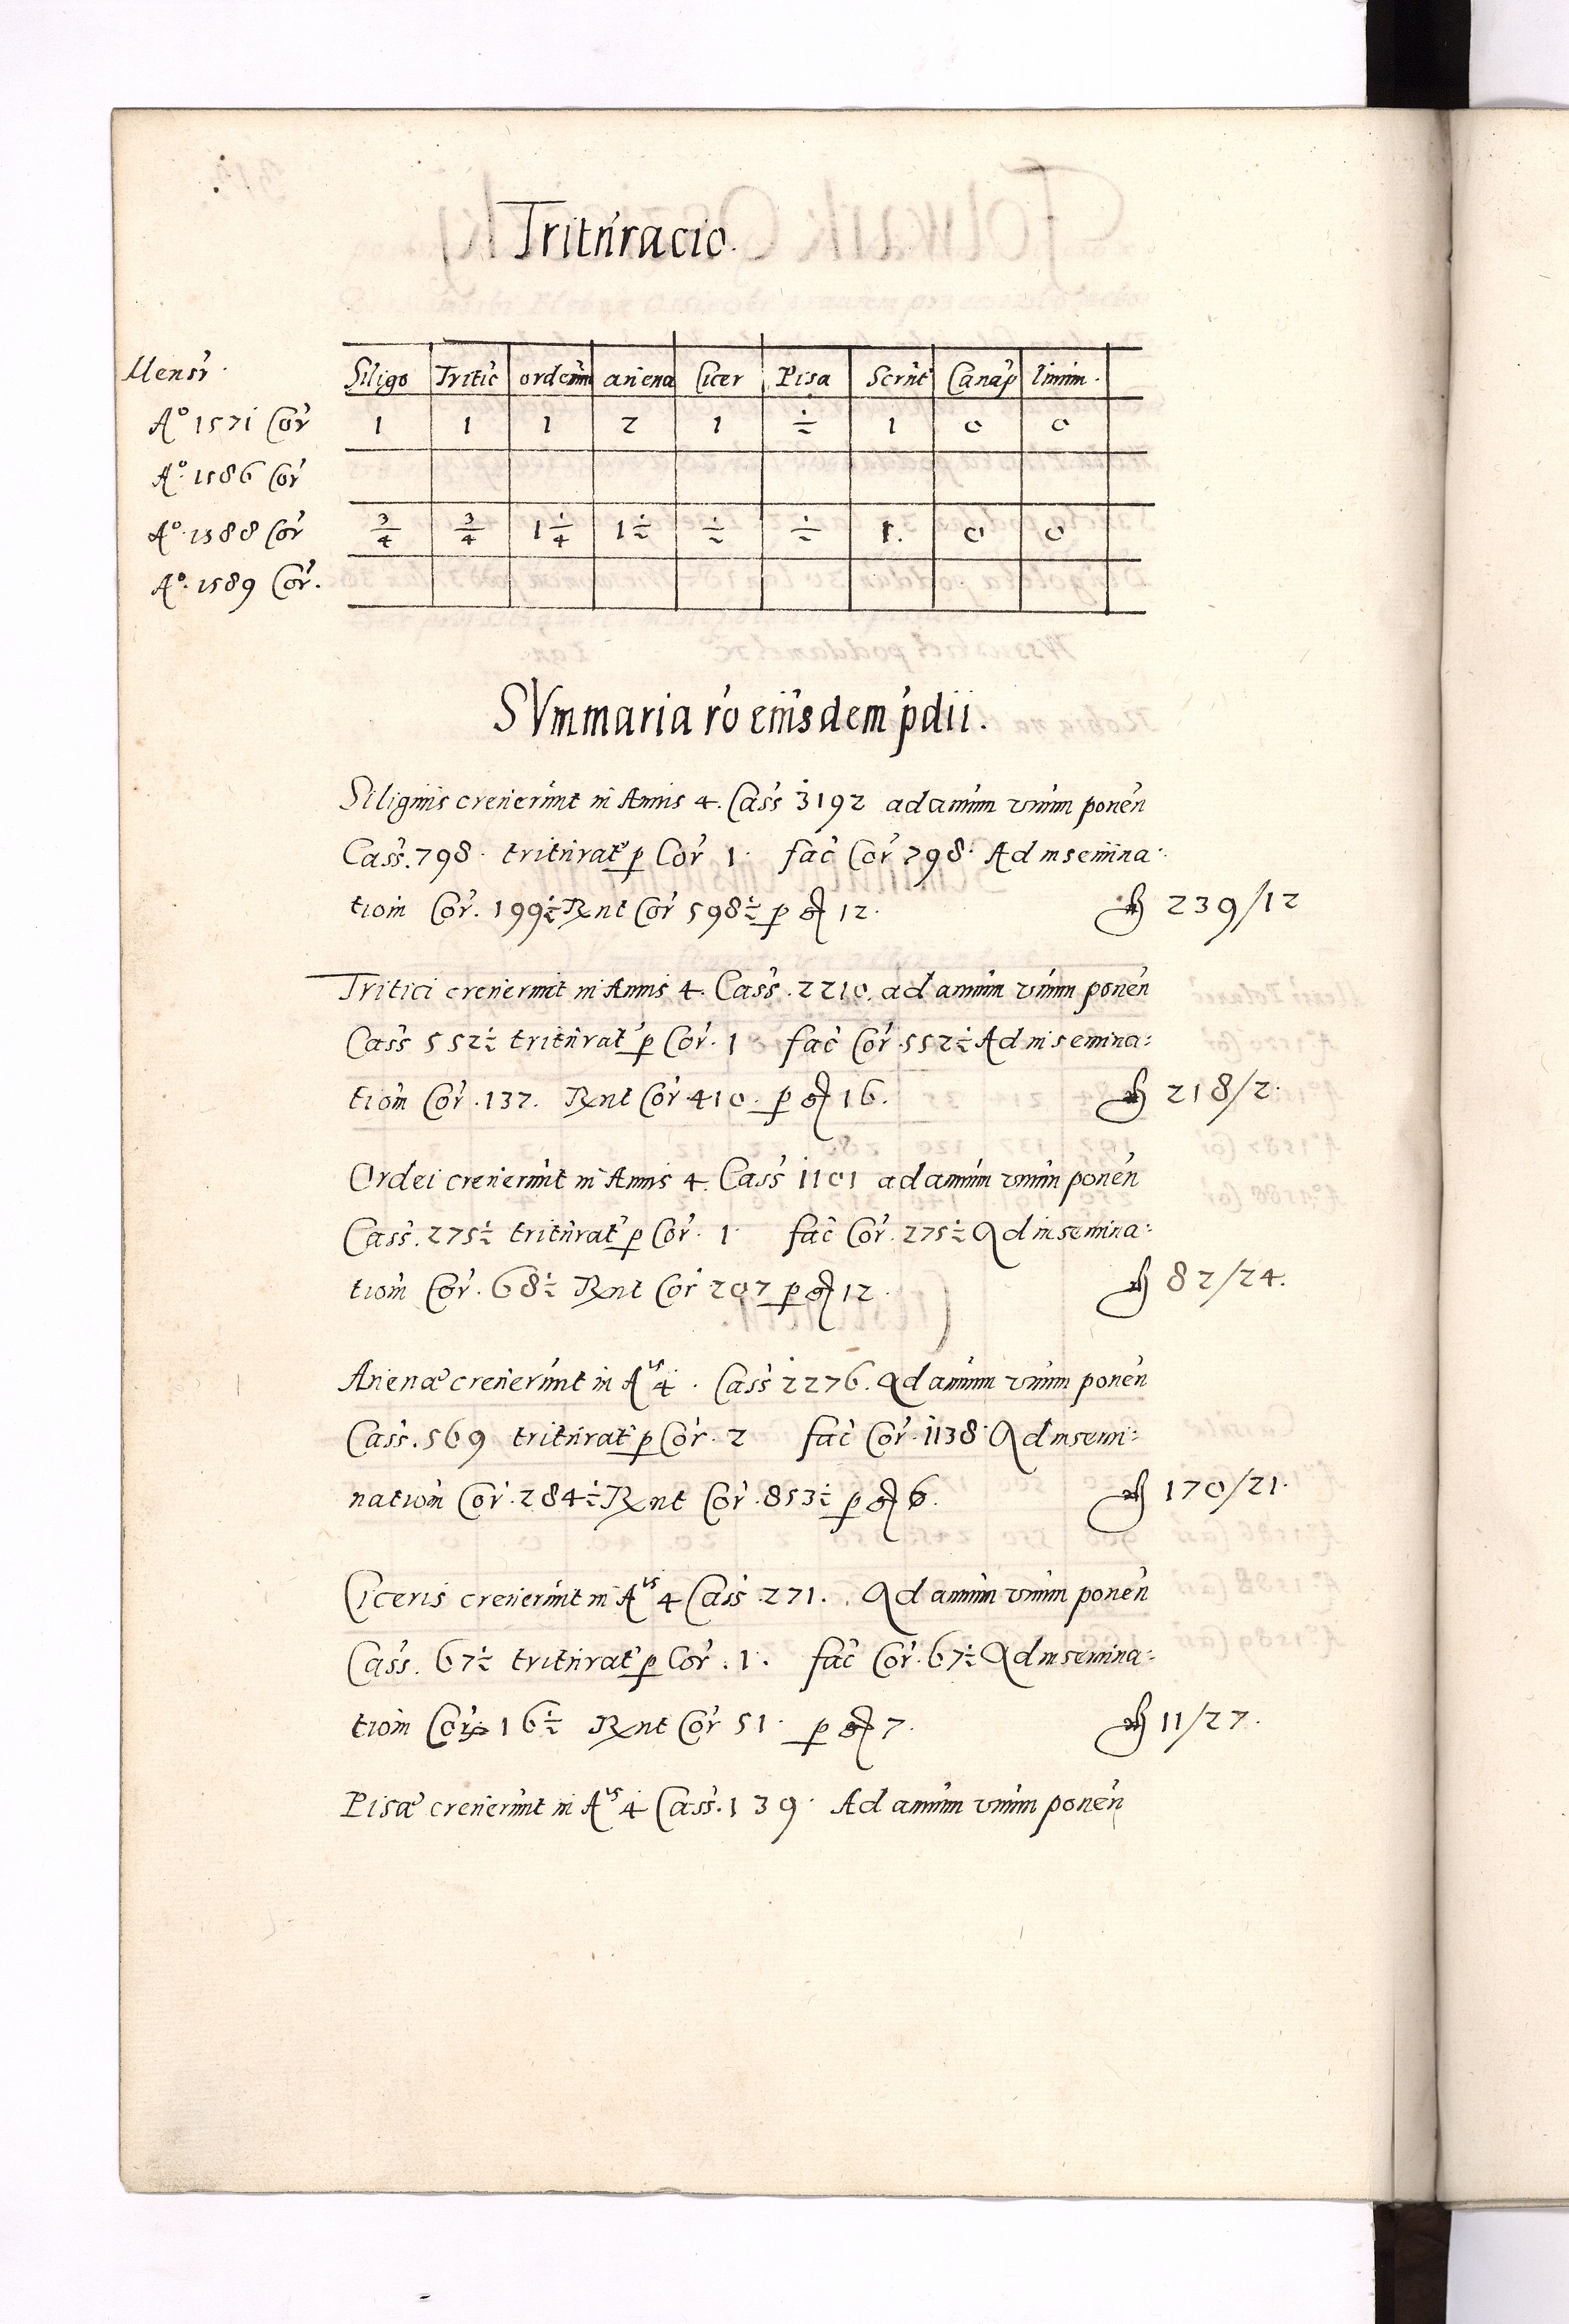 Tritúracio.
Mensr̃. Siligo Tritic̃ ordeũm aũena Cicer Pisa Scrũt Canap̃ linim.
A° 1571 Cor̃ 1 1 1 2 1 ½ 1 0 0
A° 1586 Cor̃
A° 1588 Cor̃ ¾ ¾ 1¼ 1½ ½ ½ 1. 0 0
A° 1589 Cor̃.
SVmmaria r̃o eiũsdem p̃dii.
Siliginis creũerũnt in Annis 4. Cass̃ 3192 ad annũm vnũm ponẽn
Cass̃. 798. tritũrat̃ p Cor̃ 1. fac̃ Cor̃ 798. Ad insemina:
tiom̃ Cor̃. 199½ Rnt Cor̃ 598½ p gr 12. 239/12
Tritici creũerunt in Annis 4. Cass̃. 2210. ad annũm vnũm ponẽn
Cass̃ 552½ tritũrat̃ p Cor̃. 1 fac̃ Cor̃. 552½ Ad insemina:
tiom̃ Cor̃. 137. Rnt Cor̃ 410. p gr 16. 218/2.
Ordei creũerũnt in Annis 4. Cass̃ 1101 ad annũm vnũm ponẽn
Cass̃. 275½ tritũrat̃ p Cor̃. 1. fac̃ Cor̃. 275½ Ad insemina:
tiom̃ Cor̃. 68½ Rnt Cor̃ 207 p gr 12. 82/24.
Aũenæ creũerũnt in A^is 4. Cass̃ 2276. Ad annũm vnũm ponẽn
Cass̃. 569 tritũrat̃ p Cor̃. 2 fac̃ Cor̃. 1138. Ad insemi:
natiom̃ Cor̃. 284½ Rnt Cor̃. 853½ p gr 6. 170/21.
Ciceris creũerũnt in A^is 4 Cass̃. 271. Ad annũm vnũm ponẽn
Cass̃. 67½ tritũrat̃ p Cor̃. 1. fac̃ Cor̃. 67½ Ad insemina:
tiom̃ Cor̃ 16½ Rnt Cor̃ 51. p gr 7. 11/27.
Pisæ creũerũnt in A^is 4 Cass̃. 139. Ad annũm vnũm ponẽn